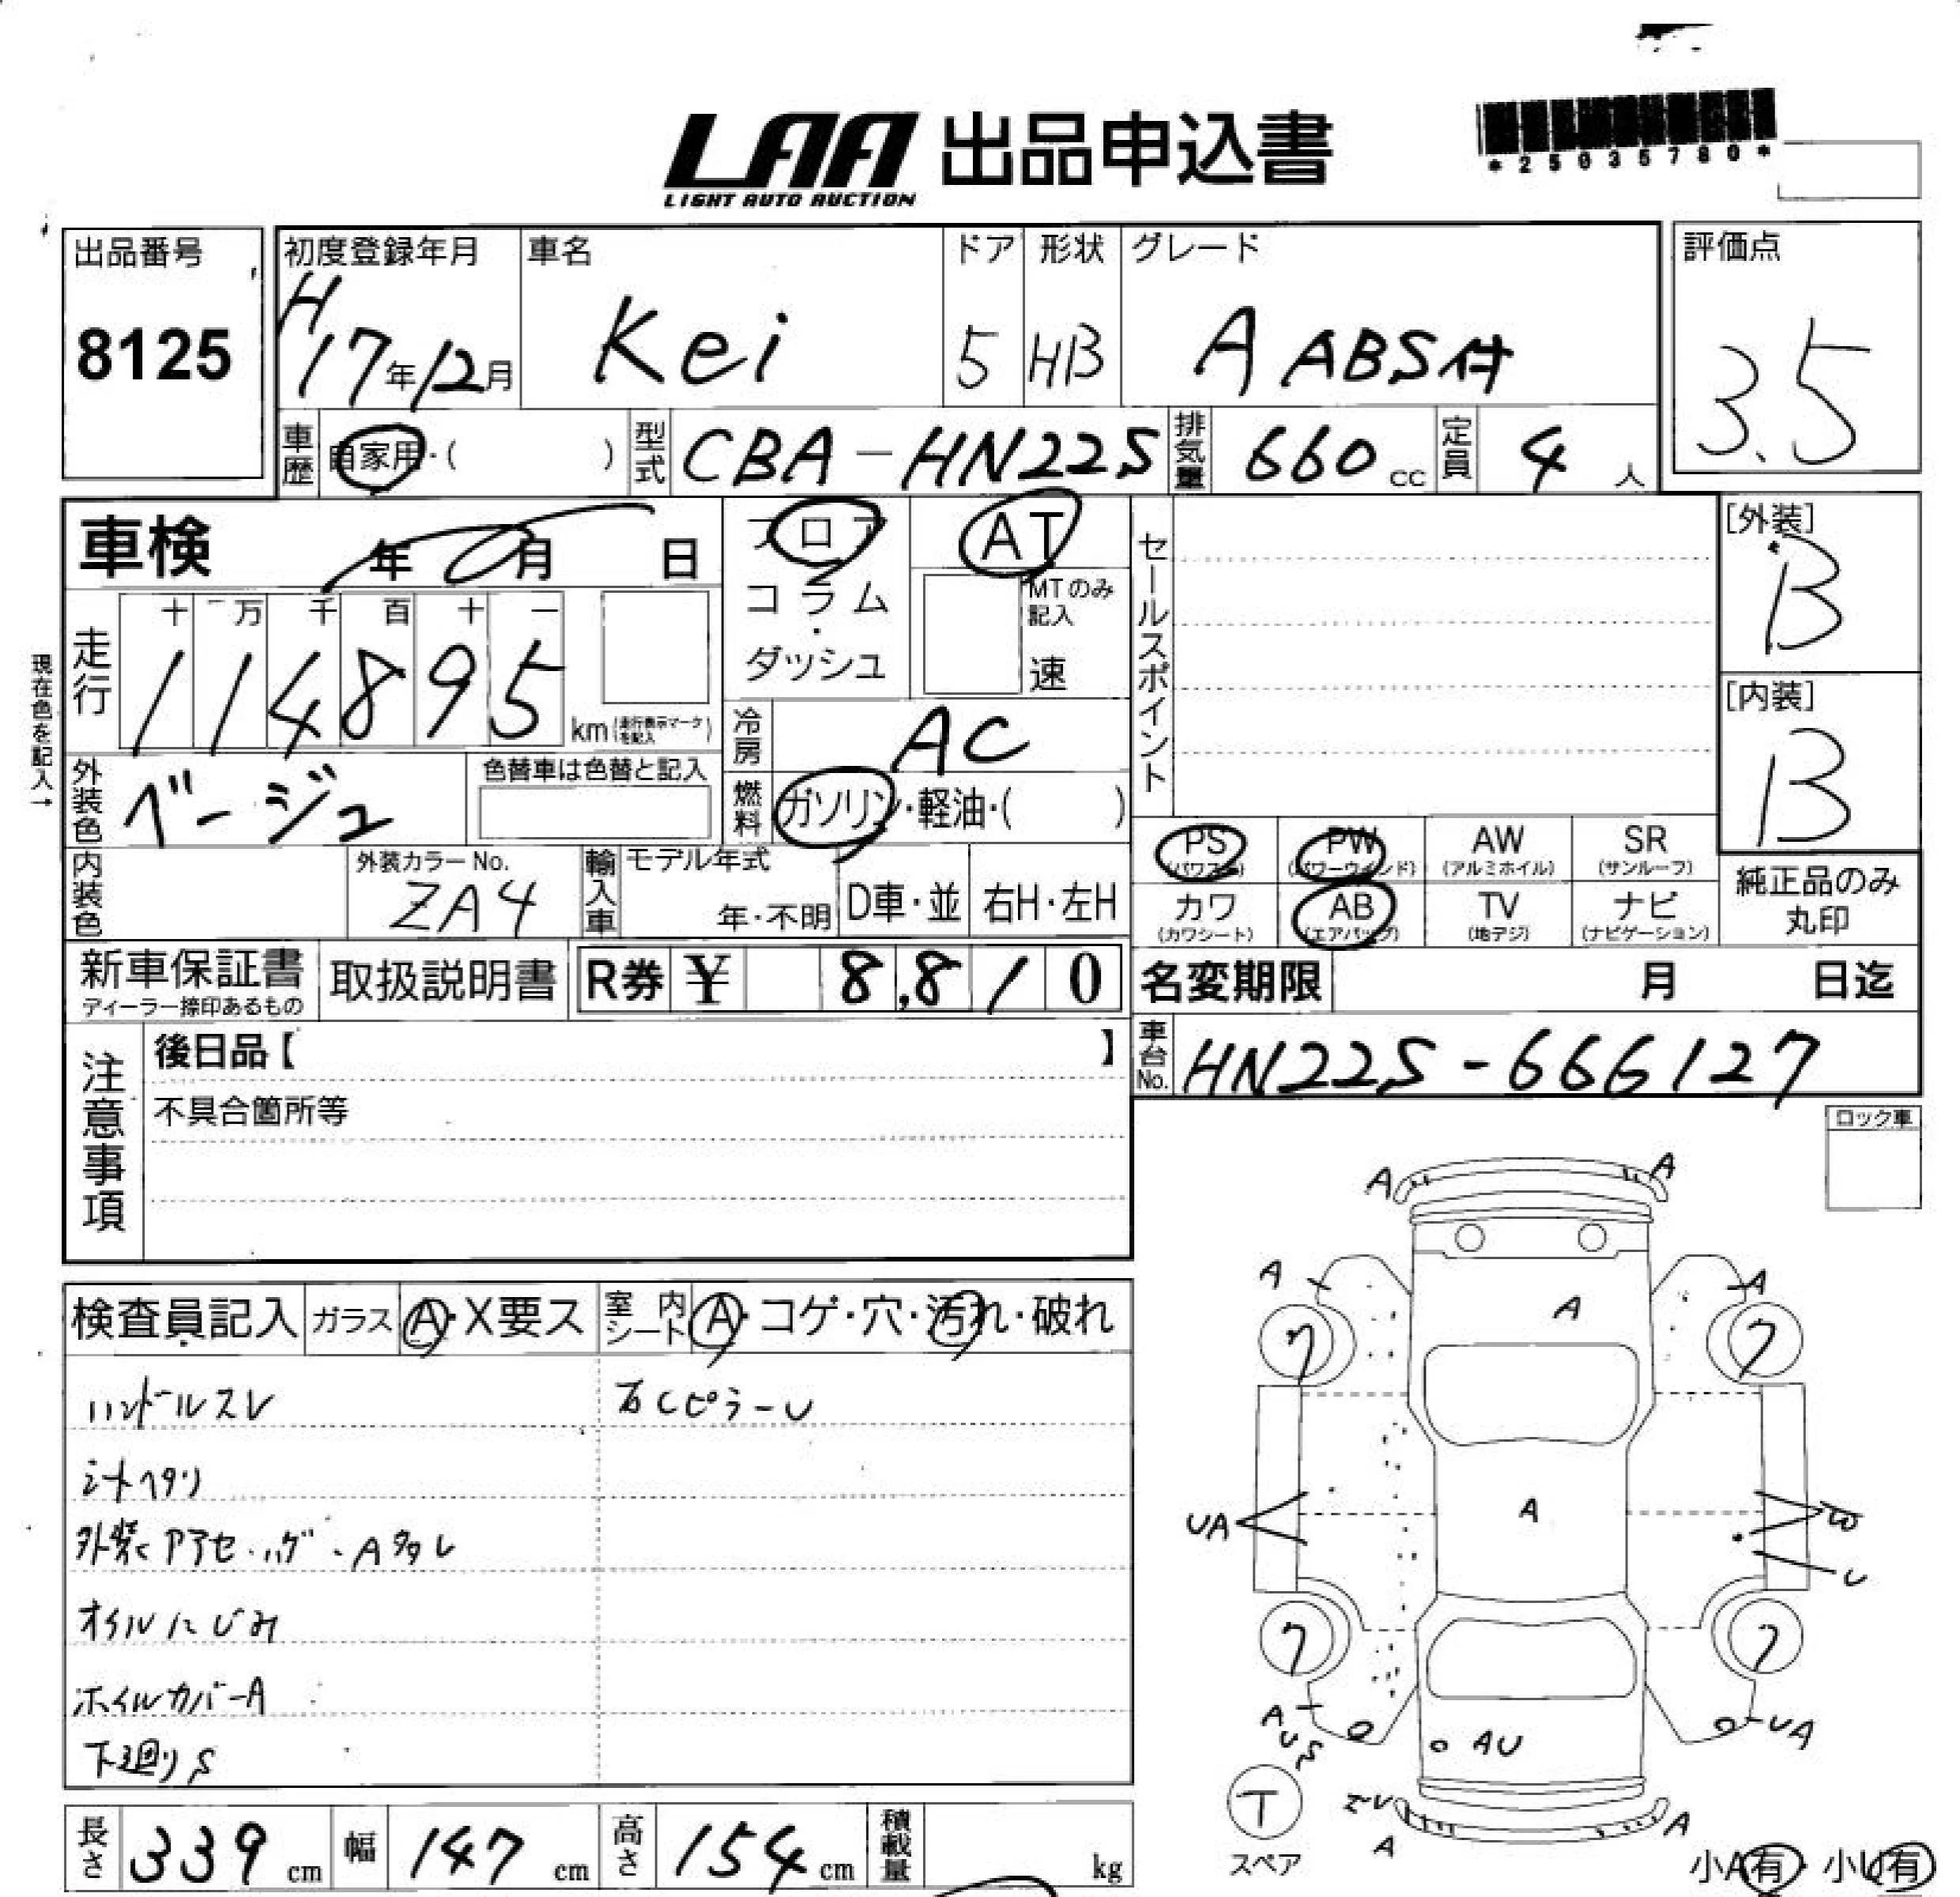 LAA 出品申込書
LIGHT AUTO AUCTION
*25035780*
出品番号
8125
初度登録年月
H17年12月
車名
Kei
ドア
5
形状
HB
グレード
A ABS付
評価点
3.5
車歴
自家用・( )
型式
CBA-HN22S
排気量
660cc
定員
4人
車検 年 月 日
フロア
コラム
・
ダッシュ
AT
MTのみ
記入
速
セールスポイント
[外装]
B
[内装]
B
現在色を記入→
走行
十 万 千 百 十 一
114895
km(走行表示マークを記入)
冷房
AC
外装色
ベージュ
色替車は色替と記入
燃料
ガソリン・軽油・( )
PS
(パワステ)
PW
(パワーウインド)
AW
(アルミホイル)
SR
(サンルーフ)
カワ
(カワシート)
AB
(エアバッグ)
TV
(地デジ)
ナビ
(ナビゲーション)
純正品のみ
丸印
内装色
外装カラーNo.
ZA4
輸入車
モデル年式
年・不明
D車・並
右H・左H
新車保証書
ディーラー捺印あるもの
取扱説明書
R券 ¥ 8,810
名変期限 月 日迄
車台No.
HN22S-666127
注意事項
後日品【 】
不具合箇所等
ロック車
検査員記入
ガラス
A・X要ス
室内シート
A・コゲ・穴・汚れ・破れ
ハンドルスレ
右CピラーU
シートヘタリ
オイルにじみ
ホイルカバーA
下廻りS
長さ
339cm
幅
147cm
高さ
154cm
積載量
kg
A
A
A
A
A
7
7
A
UA
U
7
7
A
U
S
AU
UA
T
スペア
A
A
小A有・小U有